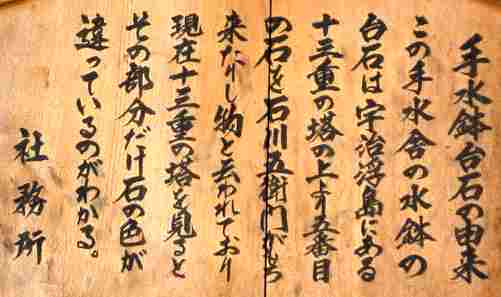 手水鉢台石の由来
この手水舎の水鉢の
台石は宇治浮島にある
十三重の塔の上ゟ五番目
の石を石川五衛門がもち
来たりし物と云われており
現在十三重の塔を見ると
その部分だけ石の色が
違っているのがわかる。
社務所